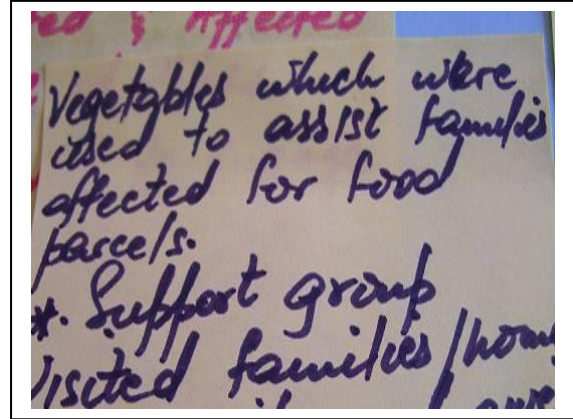 & Affected
Vegetables which were
used to assist families
affected for food
parcels.
*. Support group
Visited families/hom